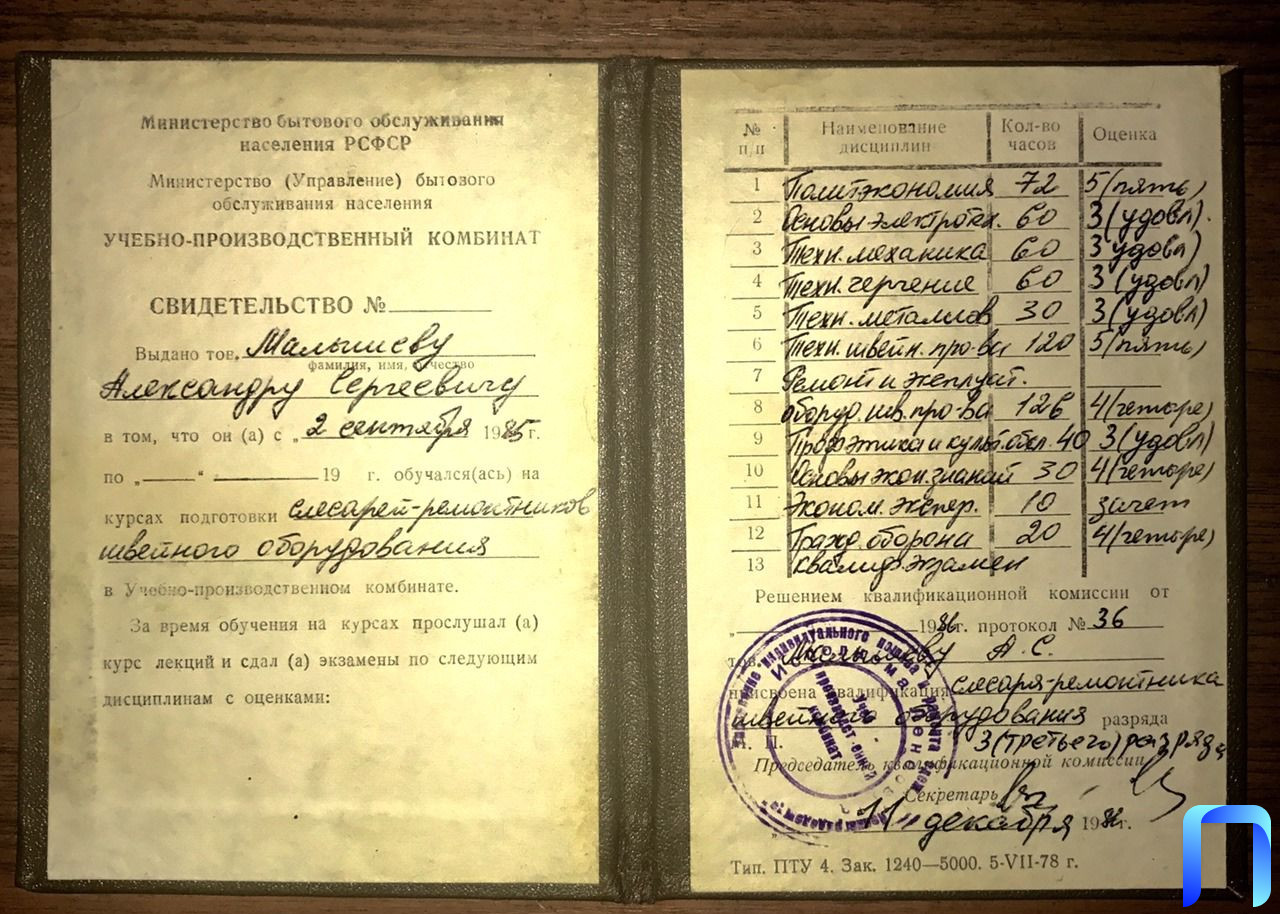 Министерство бытового обслуживания
населения РСФСР
Министерство (Управление) бытового
обслуживания населения
УЧЕБНО-ПРОИЗВОДСТВЕННЫЙ КОМБИНАТ
СВИДЕТЕЛЬСТВО №
Выдано тов. Малышеву
фамилия, имя, отчество
Александру Сергеевичу
в том, что он (а) с „2 сентября 1985 г.
по „ “ 19 г. обучался(ась) на
курсах подготовки слесарей-ремонтников
швейного оборудования
в Учебно-производственном комбинате.
За время обучения на курсах прослушал (а)
курс лекций и сдал (а) экзамены по следующим
дисциплинам с оценками:
№ п/п Наименование дисциплин Кол-во часов Оценка
1 Политэкономия 72 5 (пять)
2 Основы электротех. 60 3 (удовл).
3 Техн. механика 60 3 удовл)
4 Техн. черчение 60 3 (удовл)
5 Техн. металлов 30 3 (удовл)
6 Техн. швейн. про-ва 120 5 (пять)
7 Ремонт и эксплуат.
8 оборуд. шв. про-ва 126 4 (четыре)
9 Проф этика и культ. обсл. 40 3 (удовл)
10 Основы экон. знаний 30 4 (четыре)
11 Эконом. экспер. 10 зачет
12 Гражд. оборона 20 4 (четыре)
13 Квалиф. экзамен
Решением квалификационной комиссии от
„ 1986 г. протокол № 36
тов. Малышеву А. С.
присвоена квалификация слесаря-ремонтника
швейного оборудования разряда
М. П. 3 (третьего) разряда
Председатель квалификационной комиссии
Секретарь
„11" декабря 1986 г.
Тип. ПТУ 4. Зак. 1240—5000. 5-VII-78 г.
индивидуального пошива и ремонта
Учеб.
производственный
комбинат